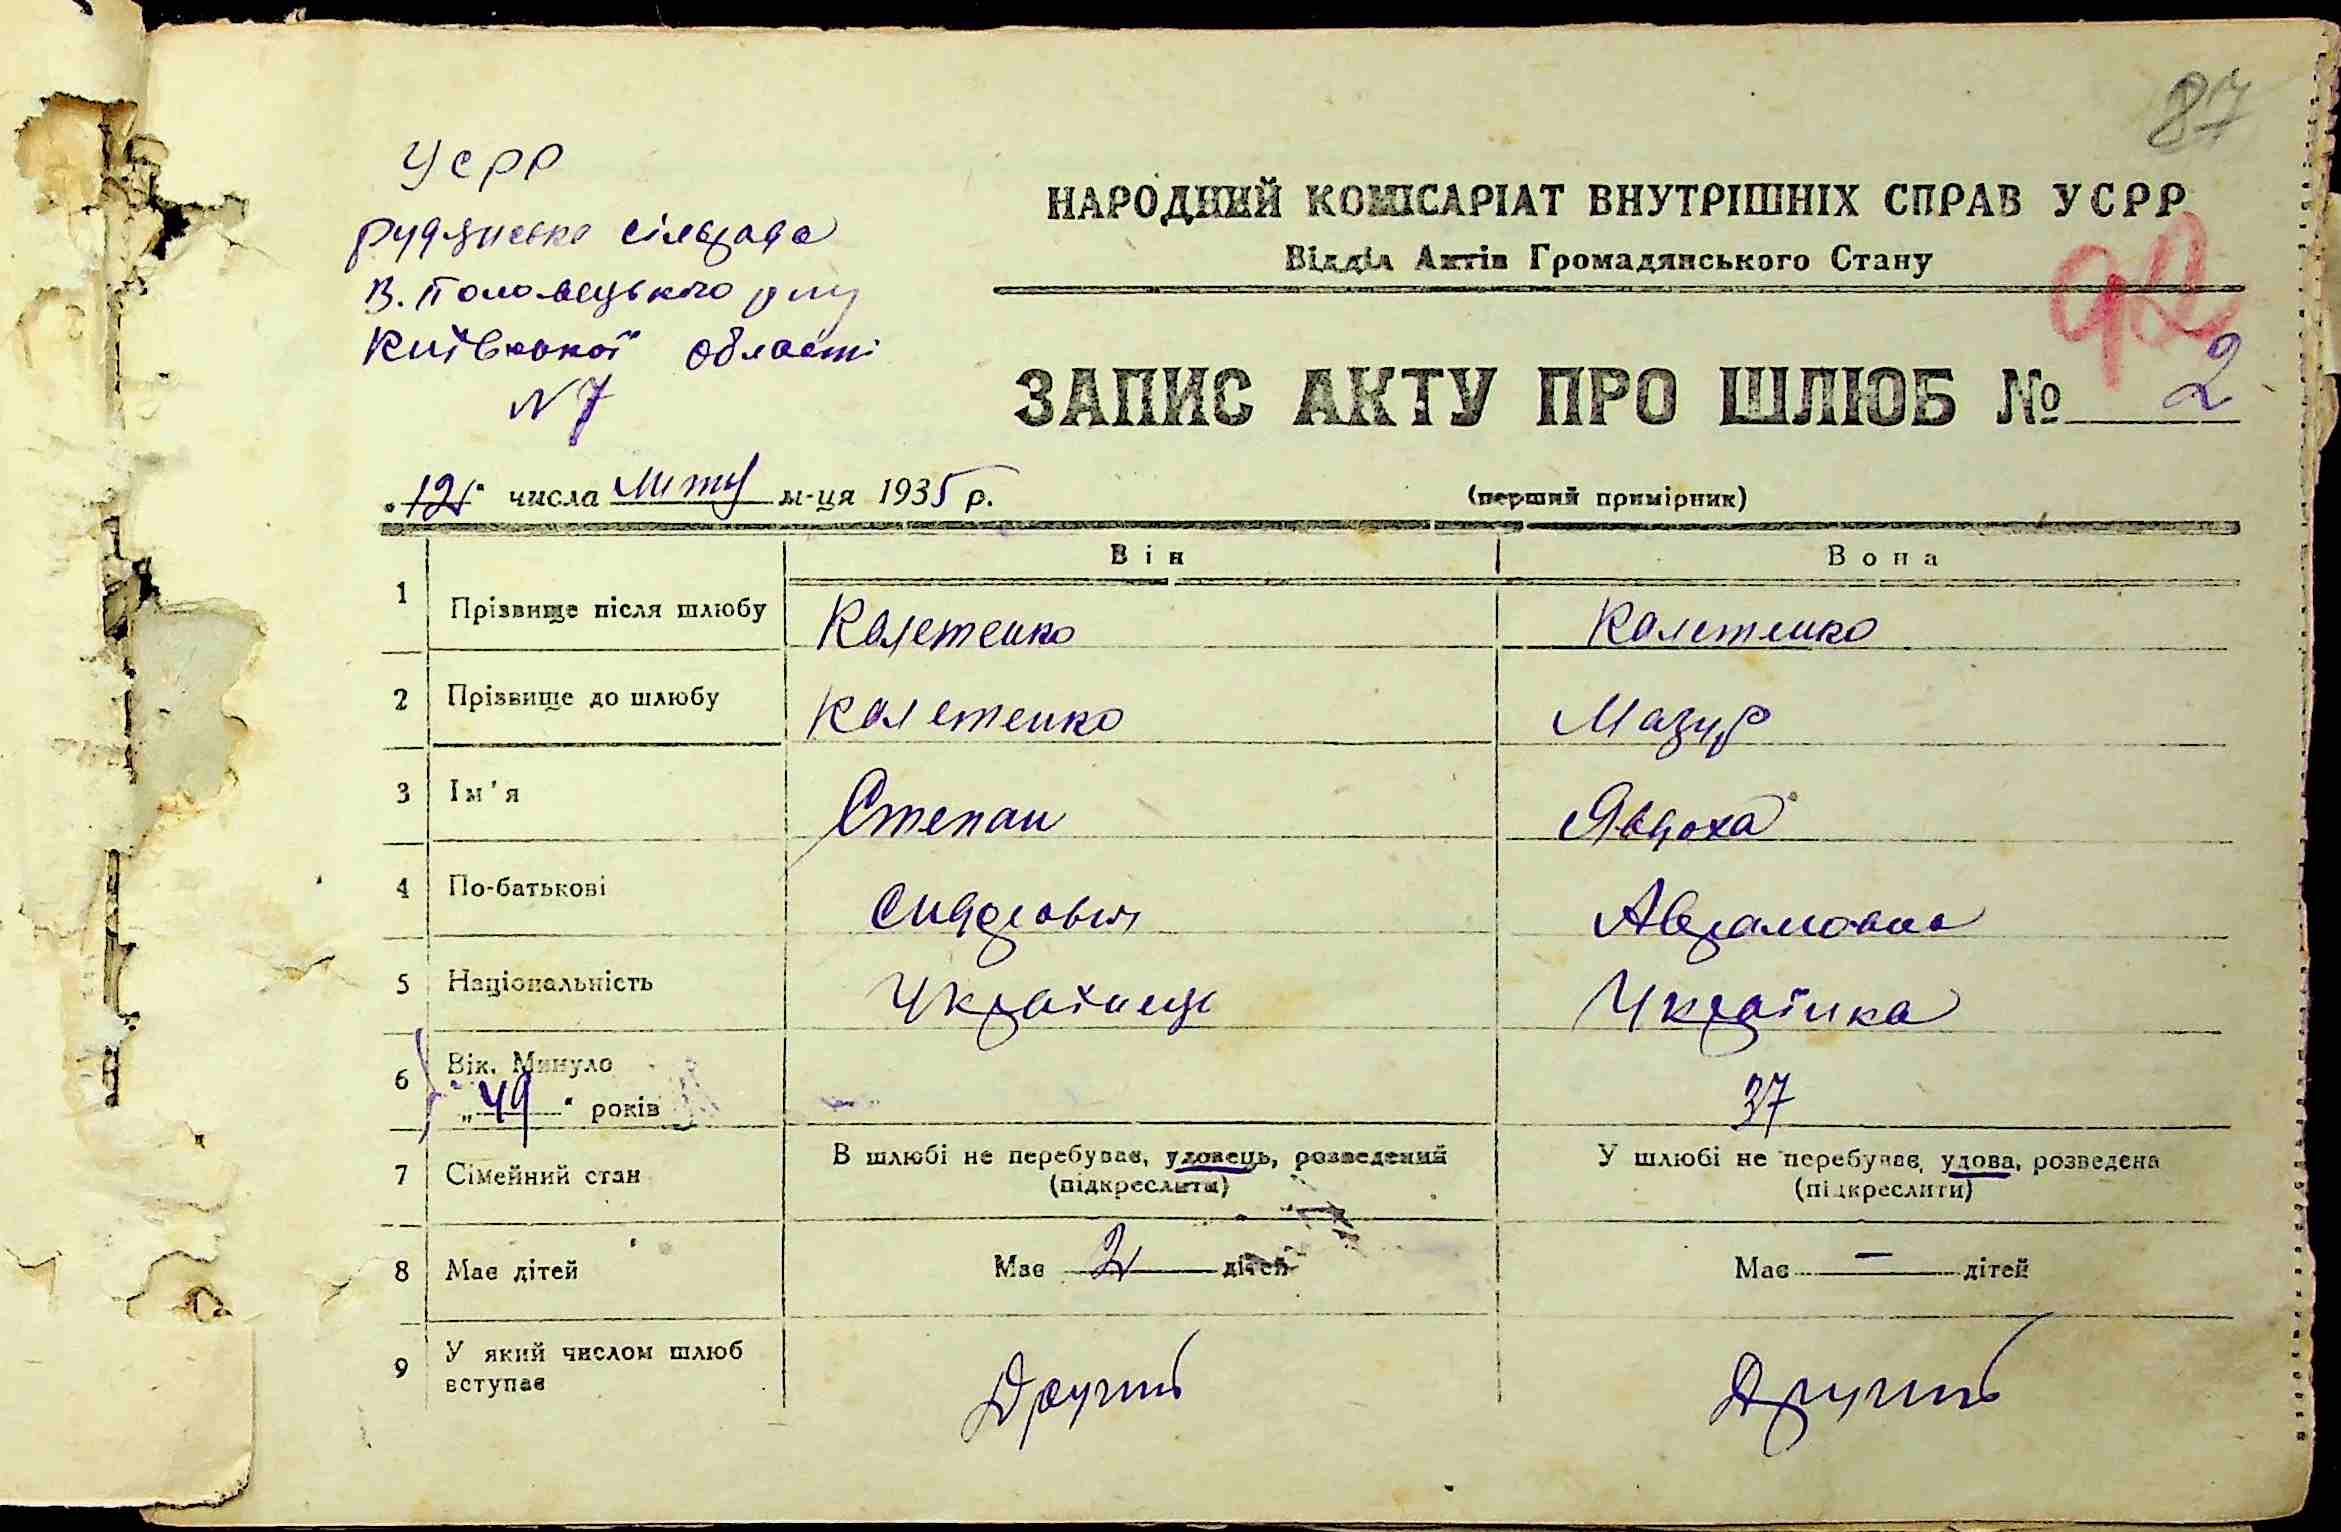 87
УСРР
Рудянська сільрада
В. Половецького р-ну
Київської області
N 7
НАРОДНИЙ КОМІСАРІАТ ВНУТРІШНІХ СПРАВ УСРР
Відділ Актів Громадянського Стану
92
ЗАПИС АКТУ ПРО ШЛЮБ № 2
"12" числа лютий м-ця 1935 р.
(перший примірник)
Він Вона
1 Прізвище після шлюбу Калетенко Калетенко
2 Прізвище до шлюбу Калетенко Мазур
3 Ім'я Степан Явдоха
4 По-батькові Аврамовна
5 Національність Українець Українка
6 Вік. Минуло
„49“ років 37
7 Сімейний стан В шлюбі не перебуває, удовець, розведений У шлюбі не перебуває, удова, розведена
(підкреслити) (підкреслити)
8 Має дітей Має 2 дітей Має – дітей
9 У який числом шлюб
вступає Другий Другий